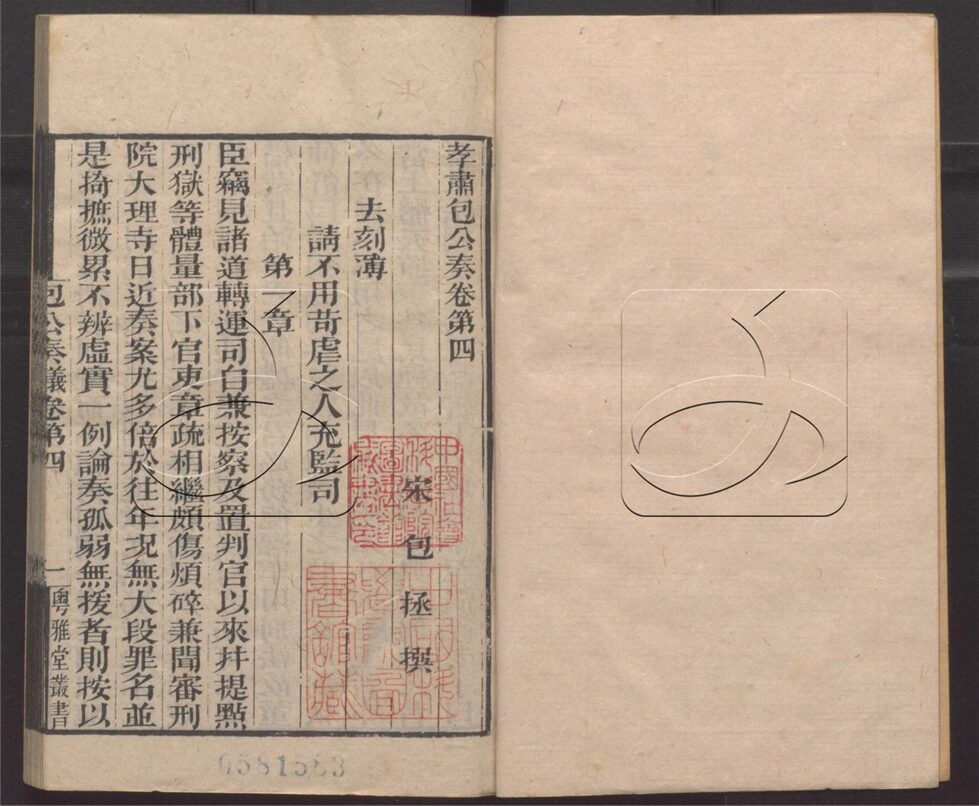 孝肅包公奏卷第四
宋 包 拯 撰
去刻薄
請不用苛虐之人充監司
第一章
臣竊見諸道轉運司自兼按察及置判官以來幷提點
刑獄等體量部下官吏章疏相繼頗傷煩碎兼聞審刑
院大理寺日近奏案尤多倍於往年况無大段罪名並
是掎摭微累不辨虛實一例論奏孤弱無援者則按以
包公奏議卷第四
一
粵雅堂叢書
0581583